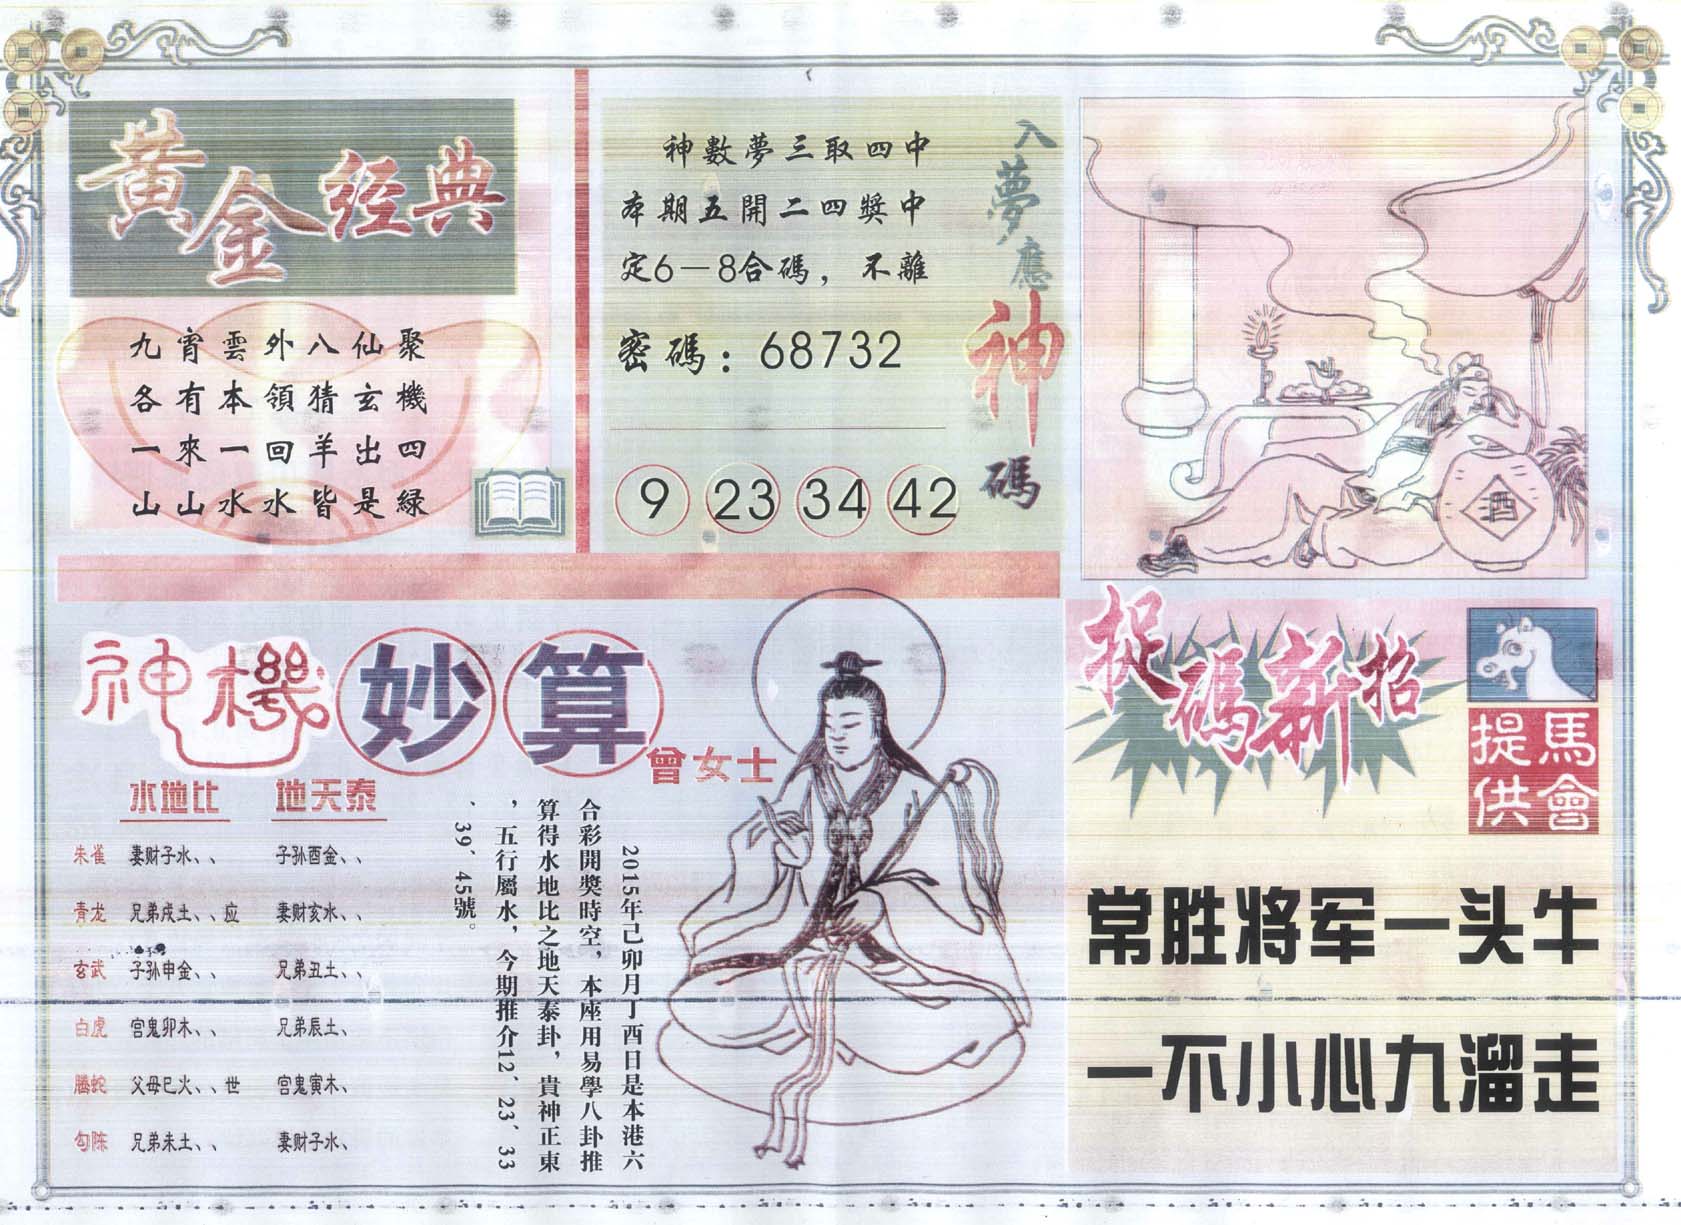 黄金经典
九宵雲外八仙聚
各有本領猜玄機
一來一回羊出四
山山水水皆是緑
入夢應神碼
神數夢三取四中
本期五開二四獎中
定6－8合碼，不離
密碼：68732
9 23 34 42
酒
神機妙算
曾女士
水地比 地天泰
朱雀 妻财子水、、 子孙酉金、、
青龙 兄弟戌土、、应 妻财亥水、、
玄武 子孙申金、、 兄弟丑土、、
白虎 宫鬼卯木、、 兄弟辰土、
螣蛇 父母巳火、、世 宫鬼寅木、
勾陈 兄弟未土、、 妻财子水、
2015年己卯月丁酉日是本港六
合彩開獎時空，本座用易學八卦推
算得水地比之地天泰卦，貴神正東
，五行屬水，今期推介12、23、33
、39、45號。
捉碼新招
馬會
提供
常胜将军一头牛
一不小心九溜走